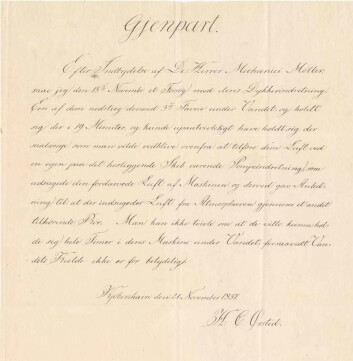 Gjenpart.
Efter Indbydelse af De Herrer Mechanici Möller
saae jeg den 18de Novembr et Forsög med deres Dykkerindretning.
Een af dem nedsteg dermed 3de Favne under Vandet og holdt
sig der i 19 Minuter og kunde upaatvivleligt have holdt sig der
saalænge som man vilde vedblive ovenfra at tilföre dem Luft ved
en egen paa det hosliggende Skib værende Pumpeindretning, som
udsugede den fordærvede Luft af Maskinen og derved gav Anled-
ning til at der indsugedes Luft fra Atmosphæren gjennem et andet
tilhörende Rör. Man kan ikke tvivle om at de ville kunne hol-
de sig hele Timer i deres Maskine under Vandet, forudsat Van-
dets Kulde ikke er for betydelig.
Kjöbenhavn den 21. November 1837.
H. C. Örsted.